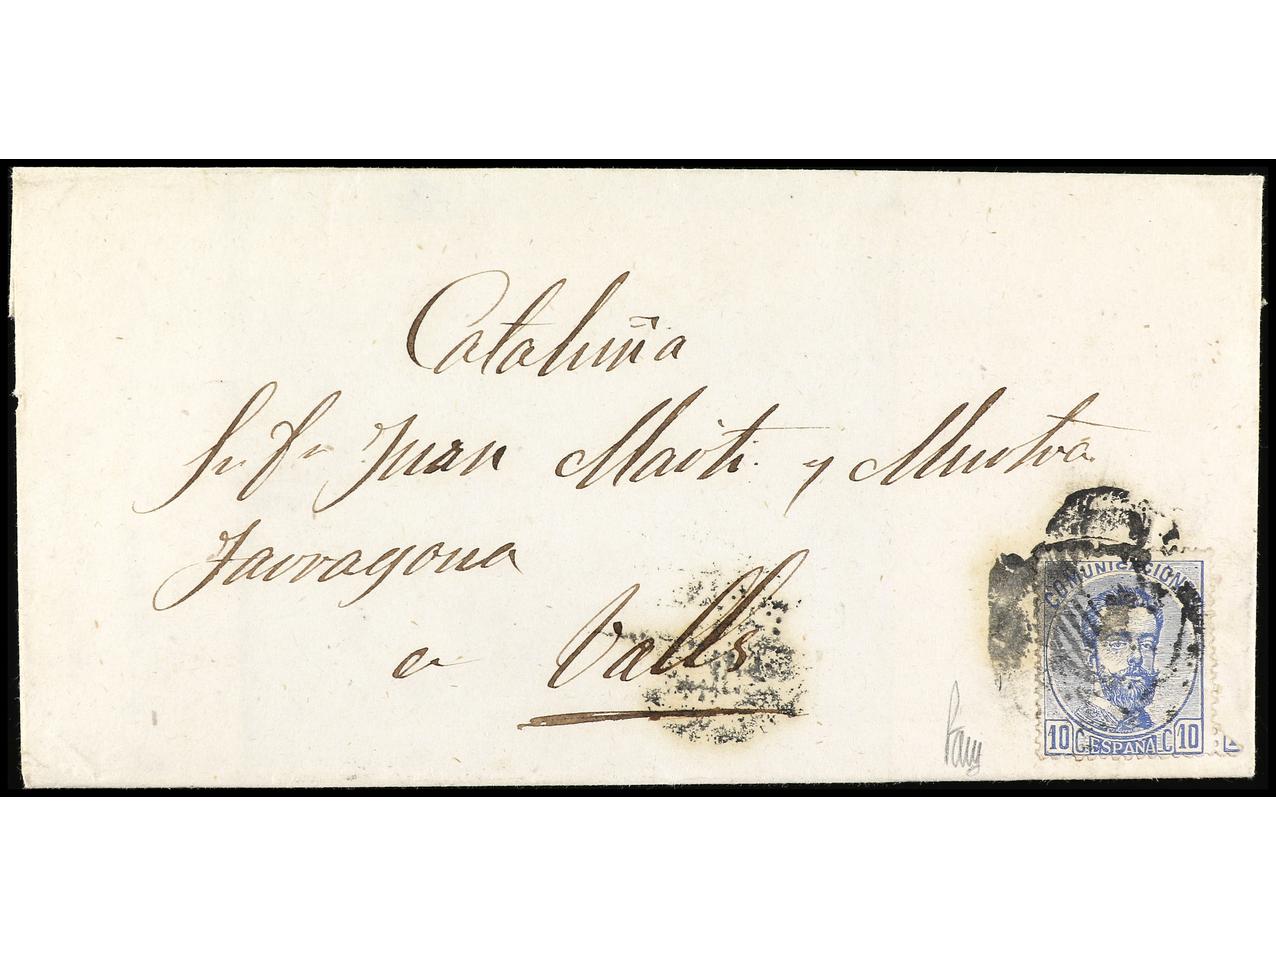 Cataluña
Sr. Dn Juan Marti y Mustva
Tarragona
a Valls
COMUNICACION
10 C. ESPAÑA C. 10